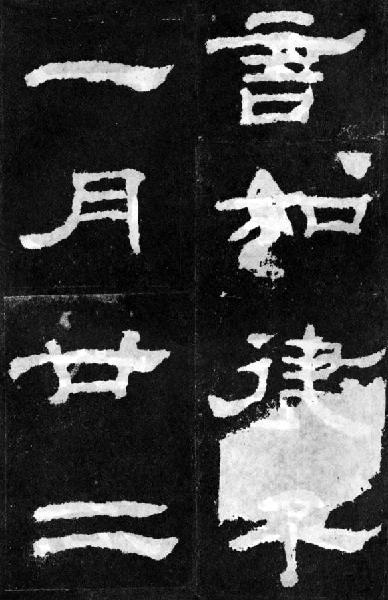 言如律令
一月廿二